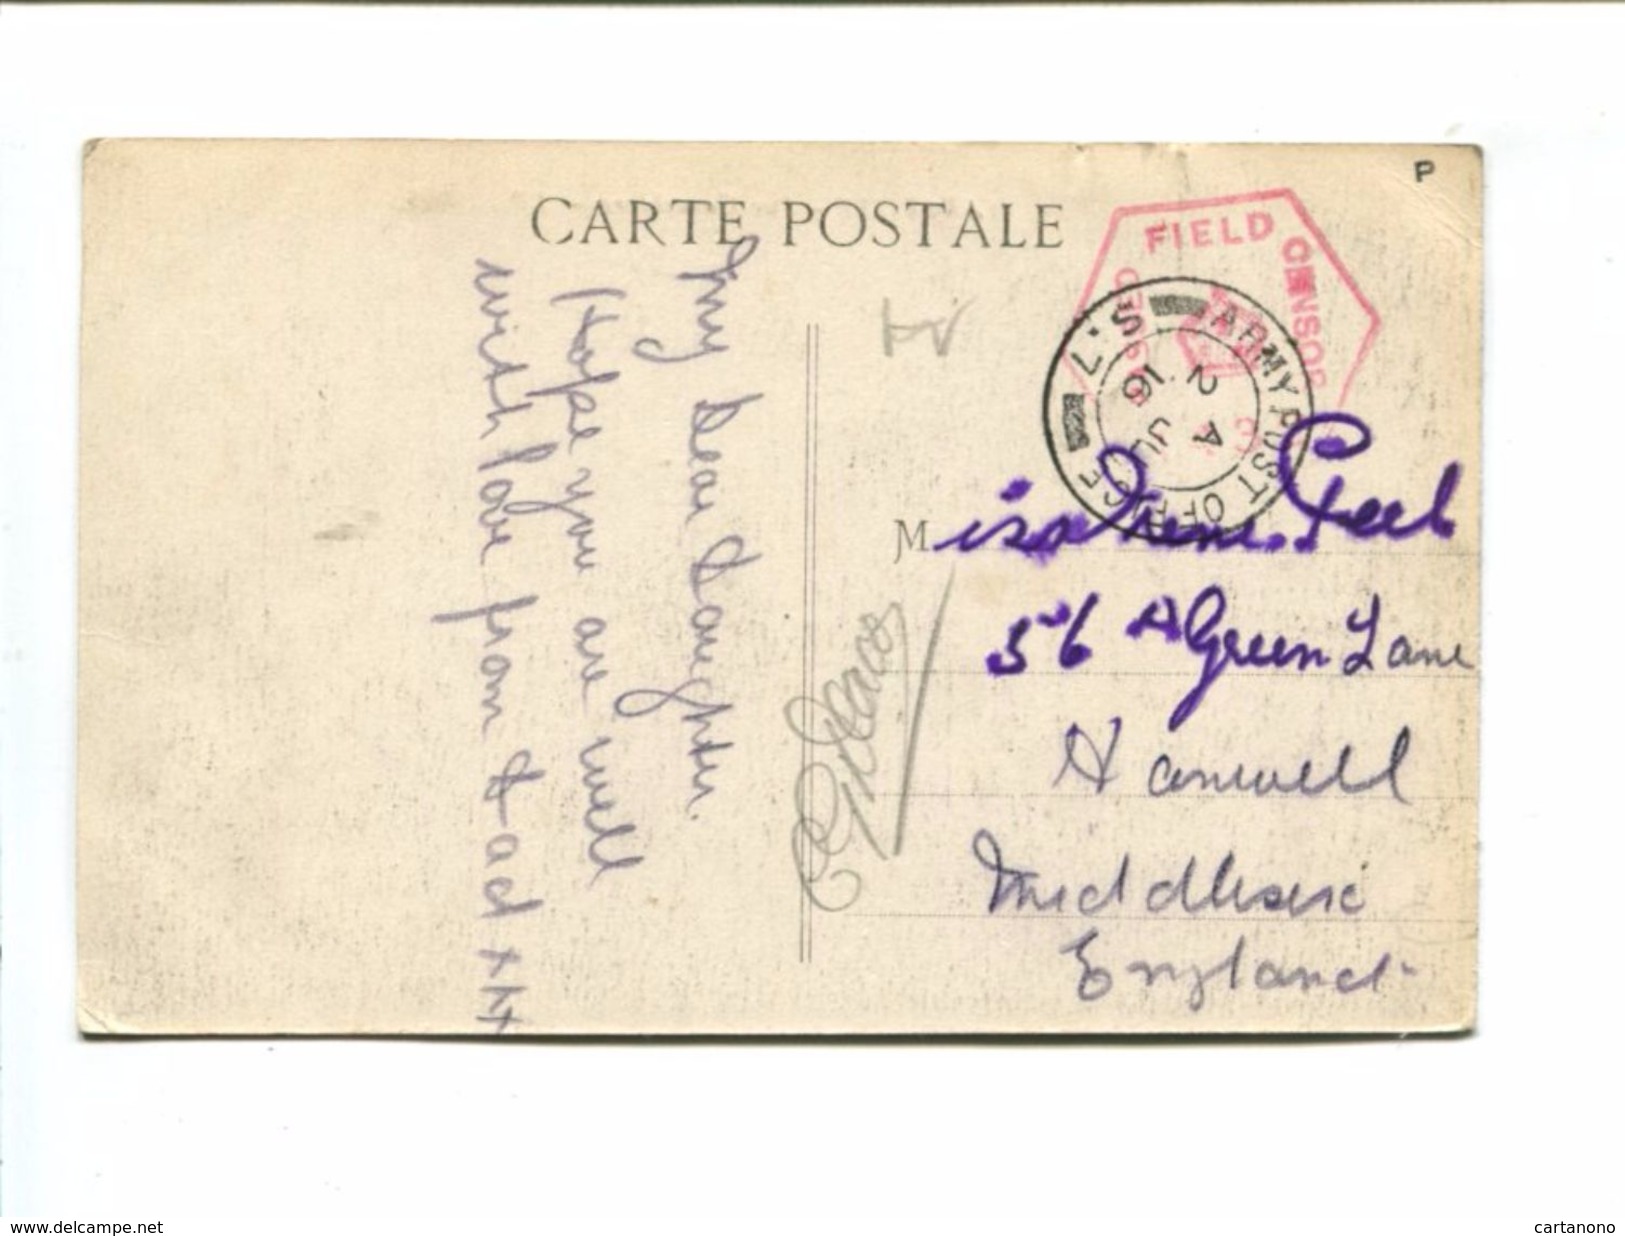 P
CARTE POSTALE
FIELD CENSOR
ARMY POST OFFICE
L.S
2 JU 16
A
My dear daughter.
Hope you are well
with love from Dad xx
xx
Miss Peet
56A Green Lane
Hanwell
Middlesex
England
www.delcampe.net
cartanono